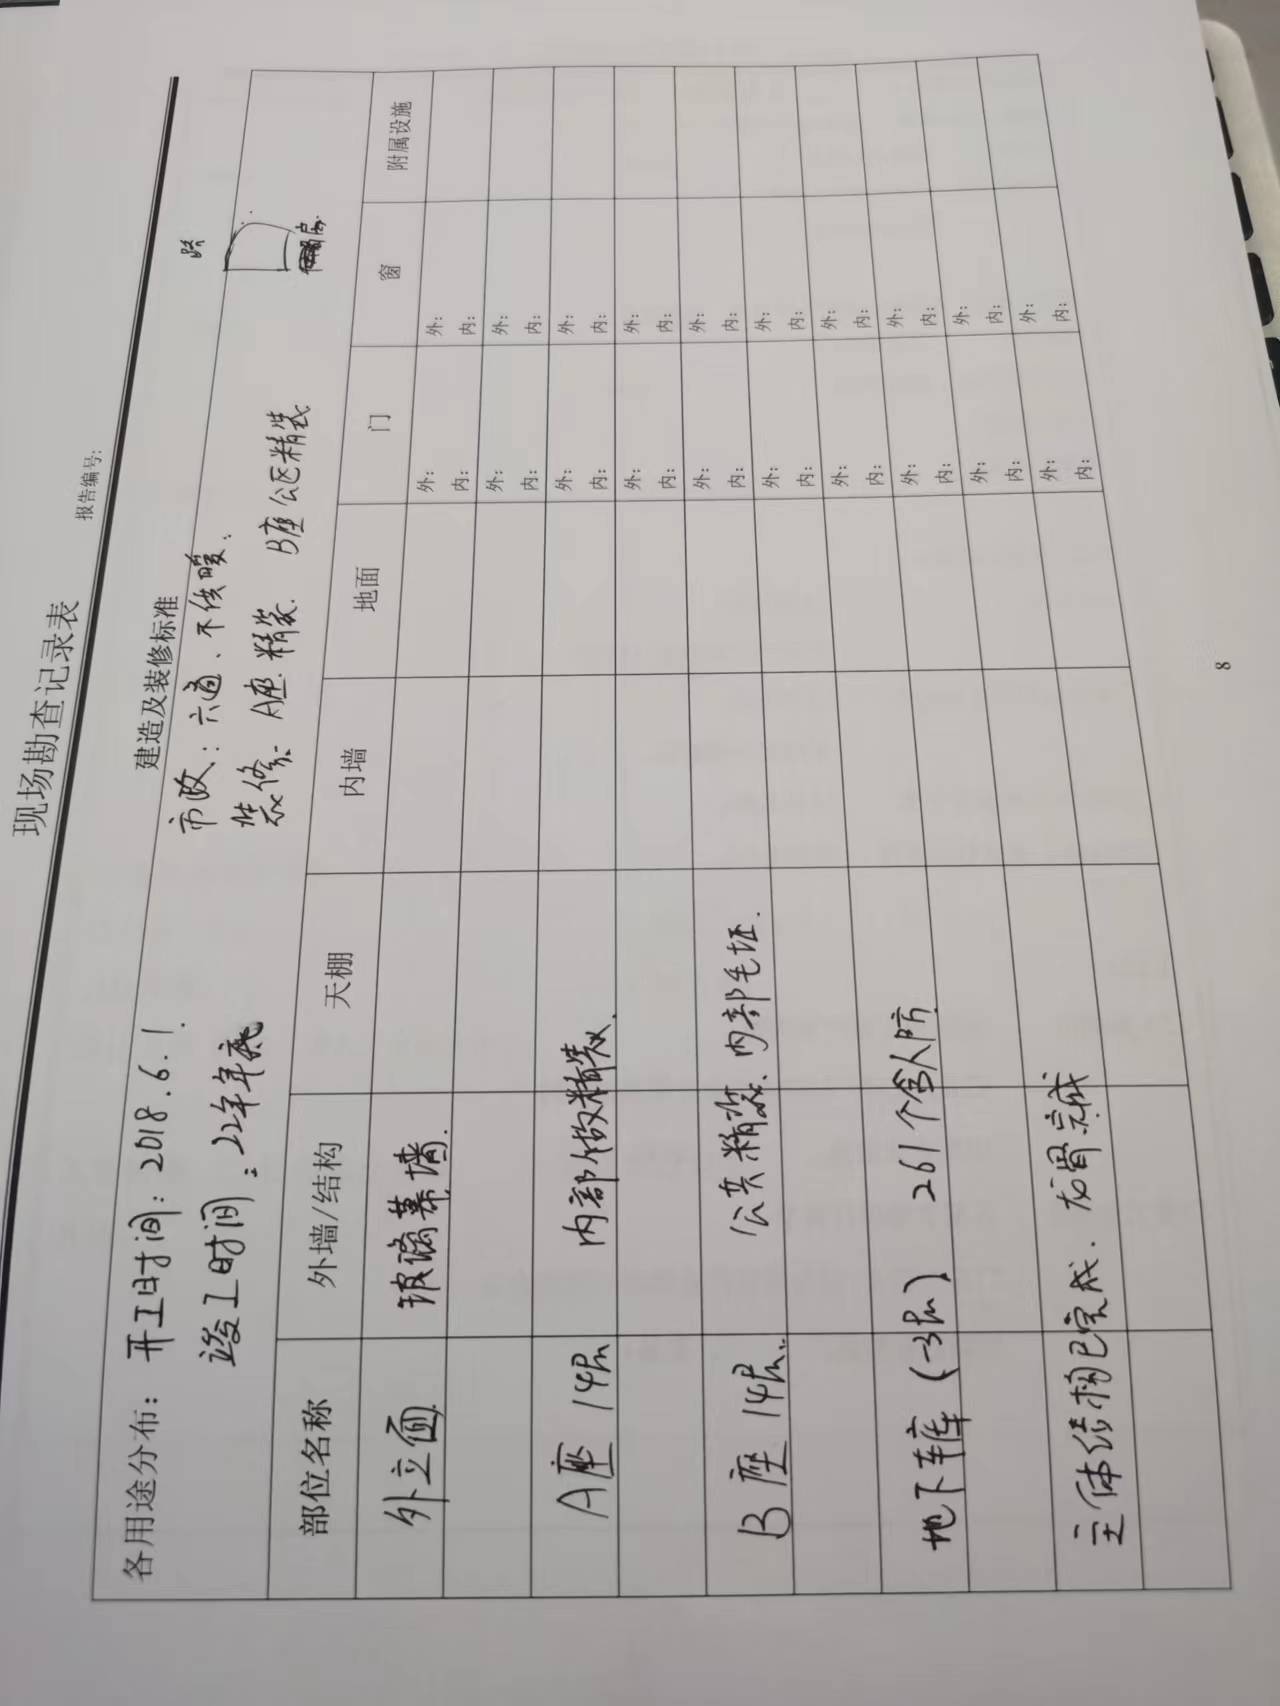 现场勘查记录表
报告编号:
建造及装修标准
各用途分布: 开工时间: 2018.6.1. 市政: 六通、不供暖、 路
竣工时间: 22年年底 装修: A座 精装. B座公区精装 房
部位名称 外墙/结构 天棚 内墙 地面 门 窗 附属设施
外立面 玻璃幕墙. 外: 内: 外: 内:
外: 内: 外: 内:
A座 14层 内部做精装. 外: 内: 外: 内:
外: 内: 外: 内:
B座 14层. 公共精装、内部毛坯. 外: 内: 外: 内:
外: 内: 外: 内:
地下车库 (-3层) 261个含人防 外: 内: 外: 内:
外: 内: 外: 内:
主体结构已完成. 龙骨完成 外: 内: 外: 内:
外: 内: 外: 内:
8